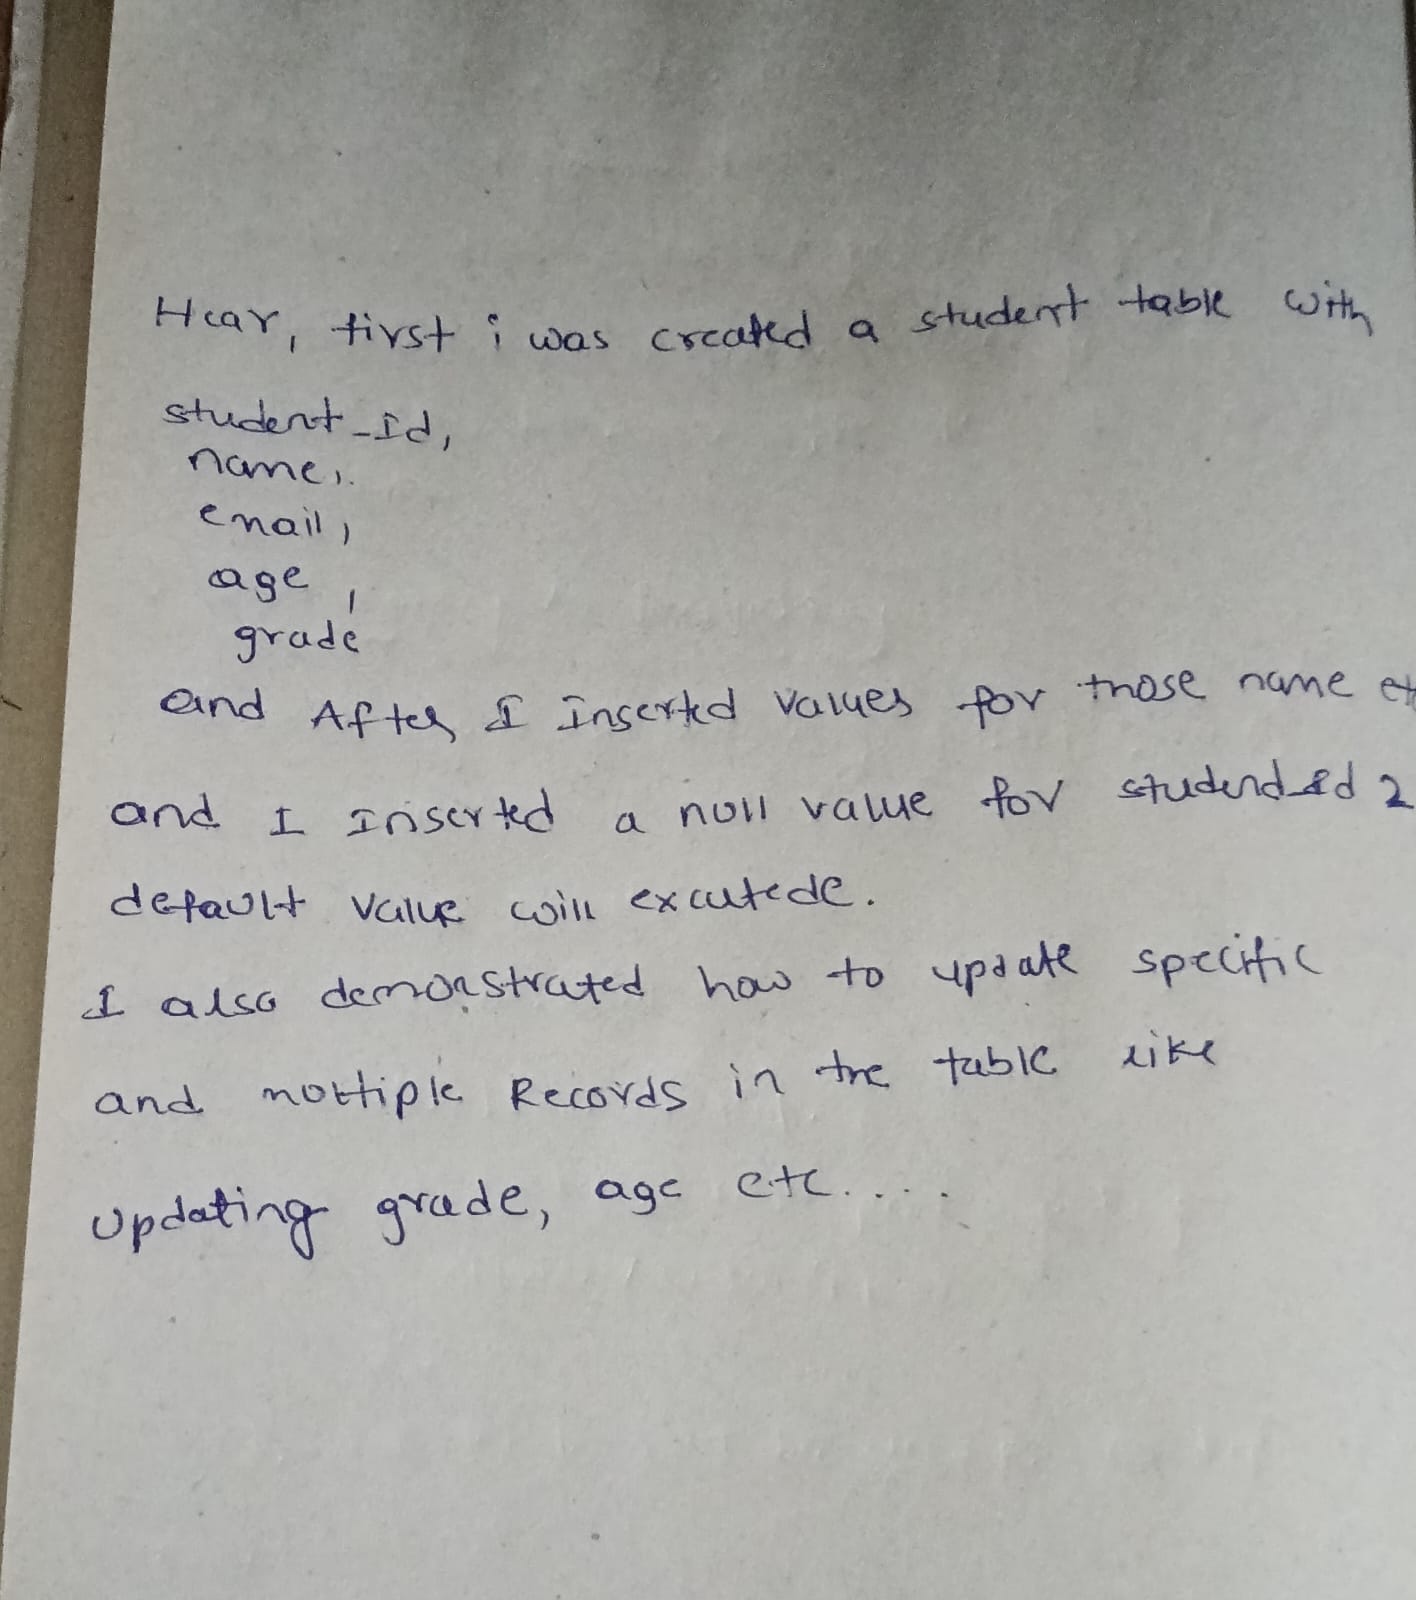 Hear, first i was created a student table with
student_Id,
name,.
email,
age,
grade
and After I inserted values for those name
and I Inserted a null value for 2
default value will excutede.
I also demonstrated how to update specific
and moltiple Records in the table like
updating grade, age etc.....